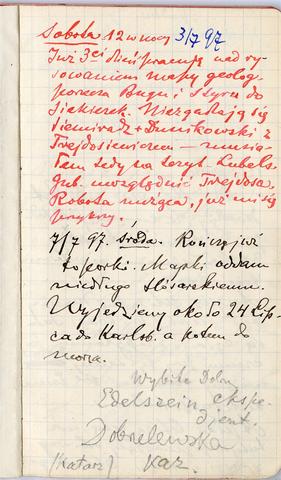 Sobota 12 w nocy 3/7 97
Już 3ci dzień pracuję nad ry-
sowaniem mapy geolog.
porzecza Bugu i Styru do
Siekierek. Niezgadzają się
Siemiradz + Dunikowski z
Trejdosiewiczem — musia-
łem tedy na teryt. Lubels.
gub. uwzględnić Trejdosa.
Robota nużąca, już mi się
przykrzy.
7/7 97. Środa. Kończę już
Mapki oddam
niedługo Ślósarskiemu.
Wyjedziemy około 24 Lip-
ca do Karlsb. a potem do
morza.
Wybita Dolny
Edelszein ekspe-
djent.
Dobrelewska
(Katarz) Kaz.